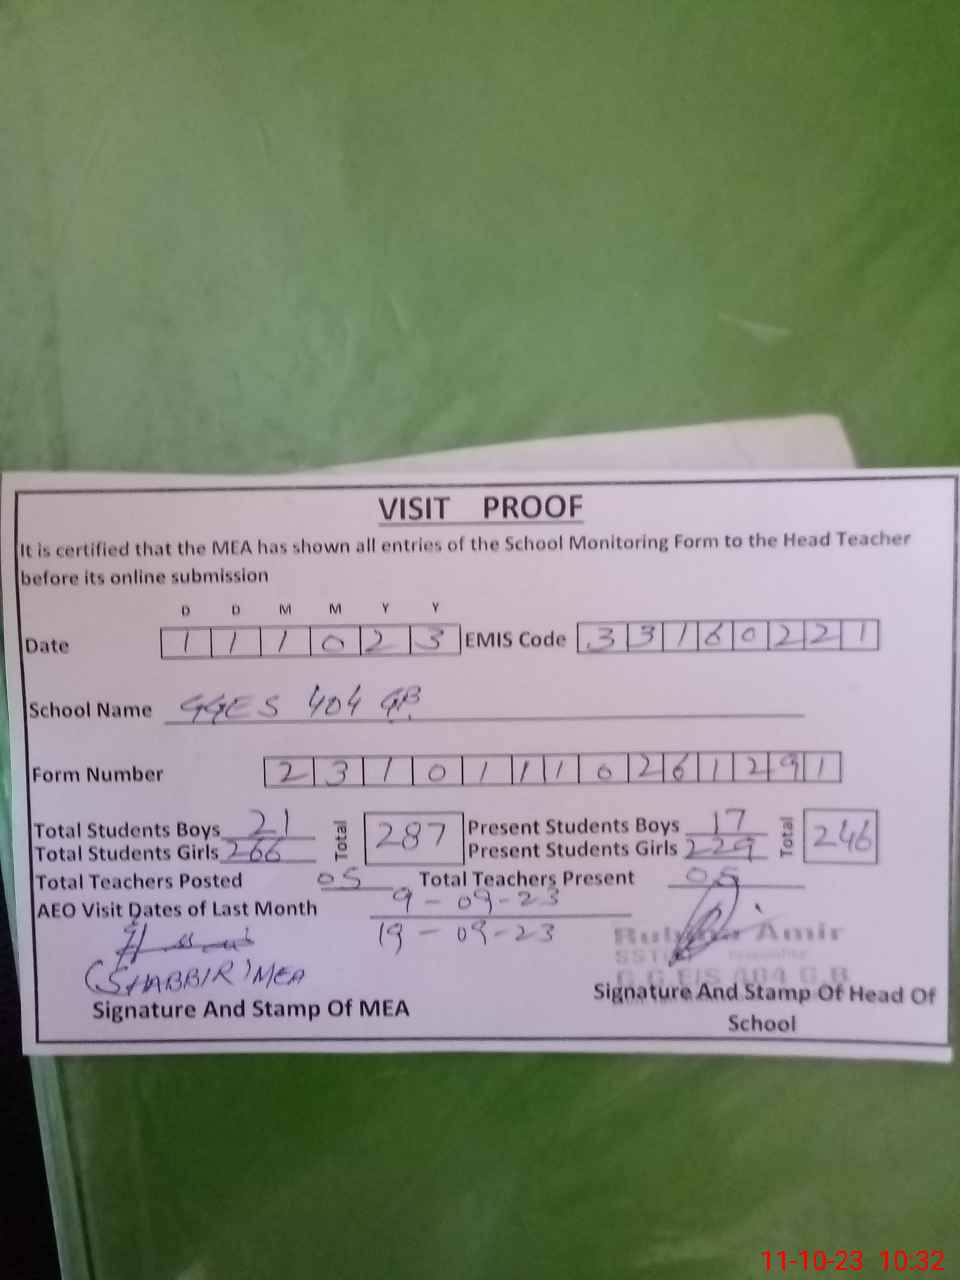 VISIT PROOF
It is certified that the MEA has shown all entries of the School Monitoring Form to the Head Teacher
before its online submission
D D M M Y Y
Date 1 1 1 0 2 3 EMIS Code 3 3 1 6 0 2 2 1
School Name GGES 404 GB
Form Number 2 3 1 0 1 1 1 0 2 6 1 2 9 1
Total Students Boys 21 Total 287 Present Students Boys 17 Total 246
Total Students Girls 266 Present Students Girls 229
Total Teachers Posted 05 Total Teachers Present 05
AEO Visit Dates of Last Month 9-09-23
19-09-23
Amir
(SHABBIR) MEA
G.G.E/S 404 G.B
Signature And Stamp Of MEA
Signature And Stamp Of Head Of
School
11-10-23 10:32